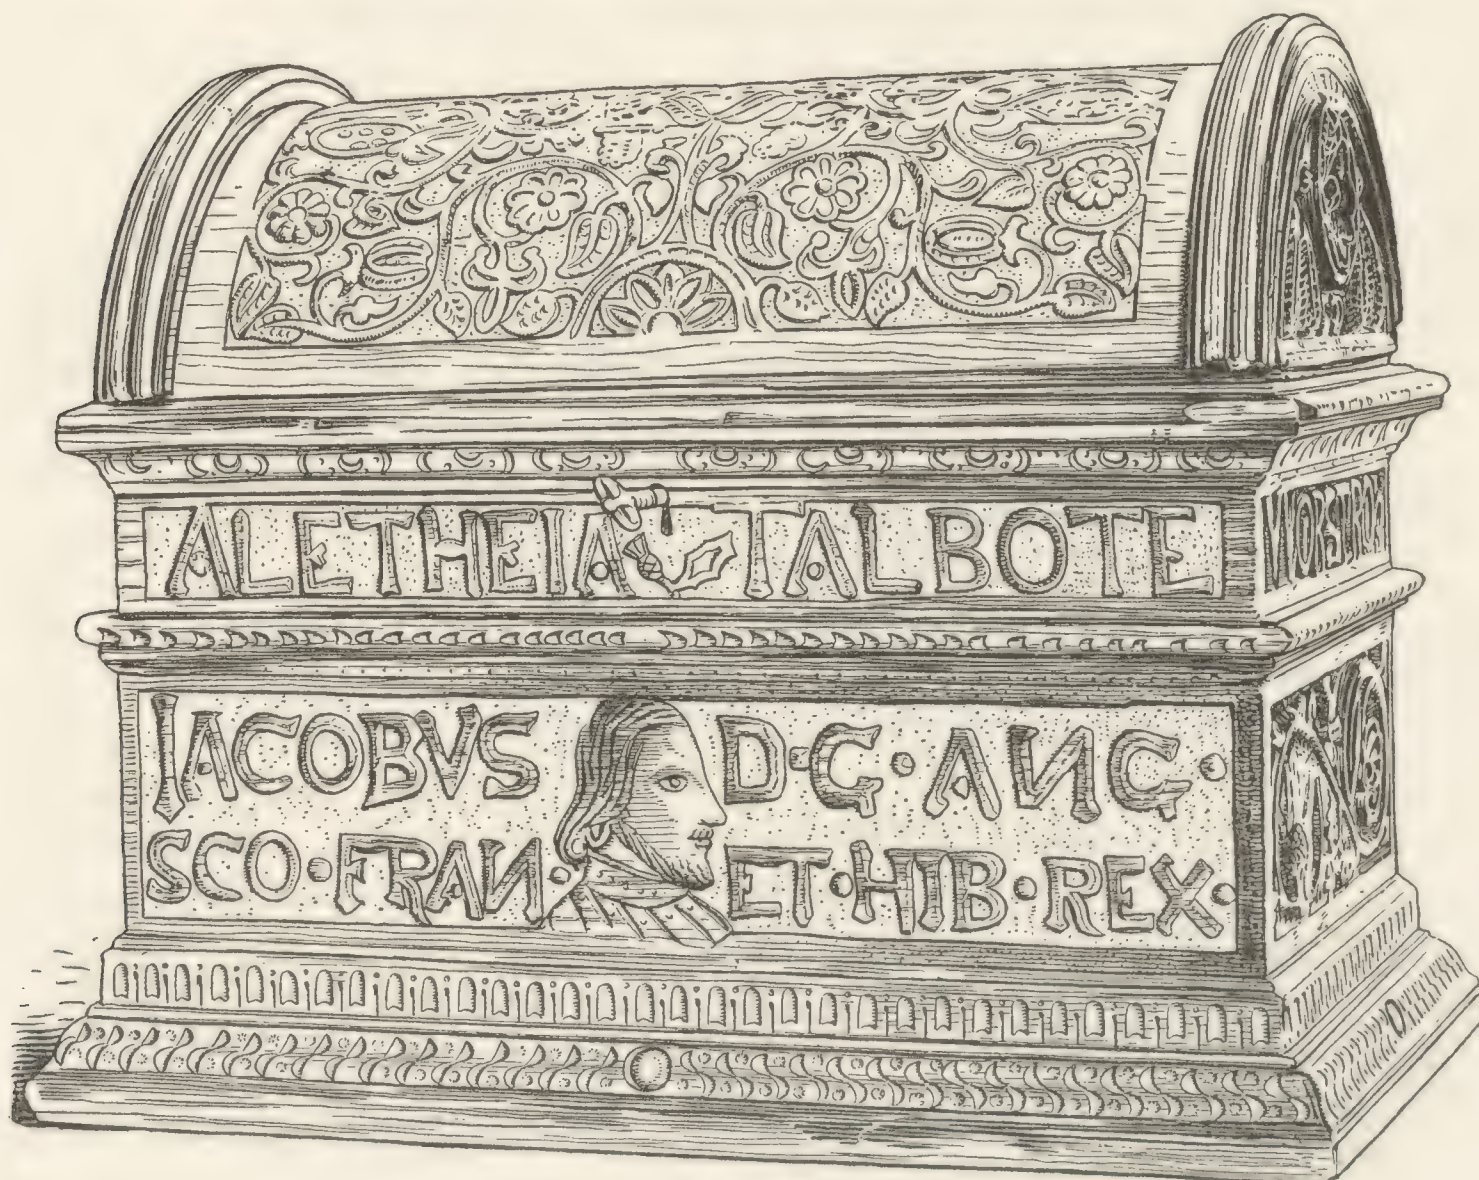 ALETHEIA TALBOTE
IACOBVS D·G·ANG·
SCO·FRAN·ET·HIB·REX·